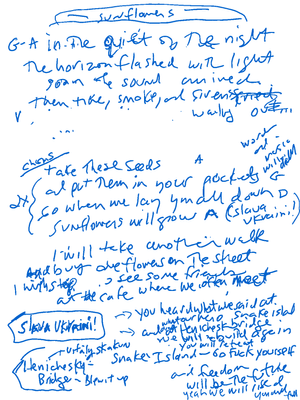 sunflowers
G-A in the quiet of the night
The horizon flashed with light
soon the sound arrived
Then fire, smoke, and sirens
wailing out...
V
....
chorus
take these seeds A
2x and put them in your pockets G
so when we lay y'all down D
sunflowers will grow A (slava Ukraini!)
words music
I will take another walk
And buy one flowers on the street
I will see some friends
at the cafe where we often meet
SLAVA UKRAINI!
you heard what we said at
Snake island
and at Henichesk bridge
we will rebuild again
Vitaliy Skakun
Henichesk
Bridge - Blew it up
Snake Island - Go fuck yourself
and freedom
will be the future
yeah we will rise